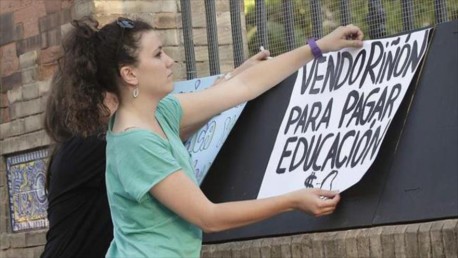 VENDO RIÑÓN
PARA PAGAR
EDUCACIÓN